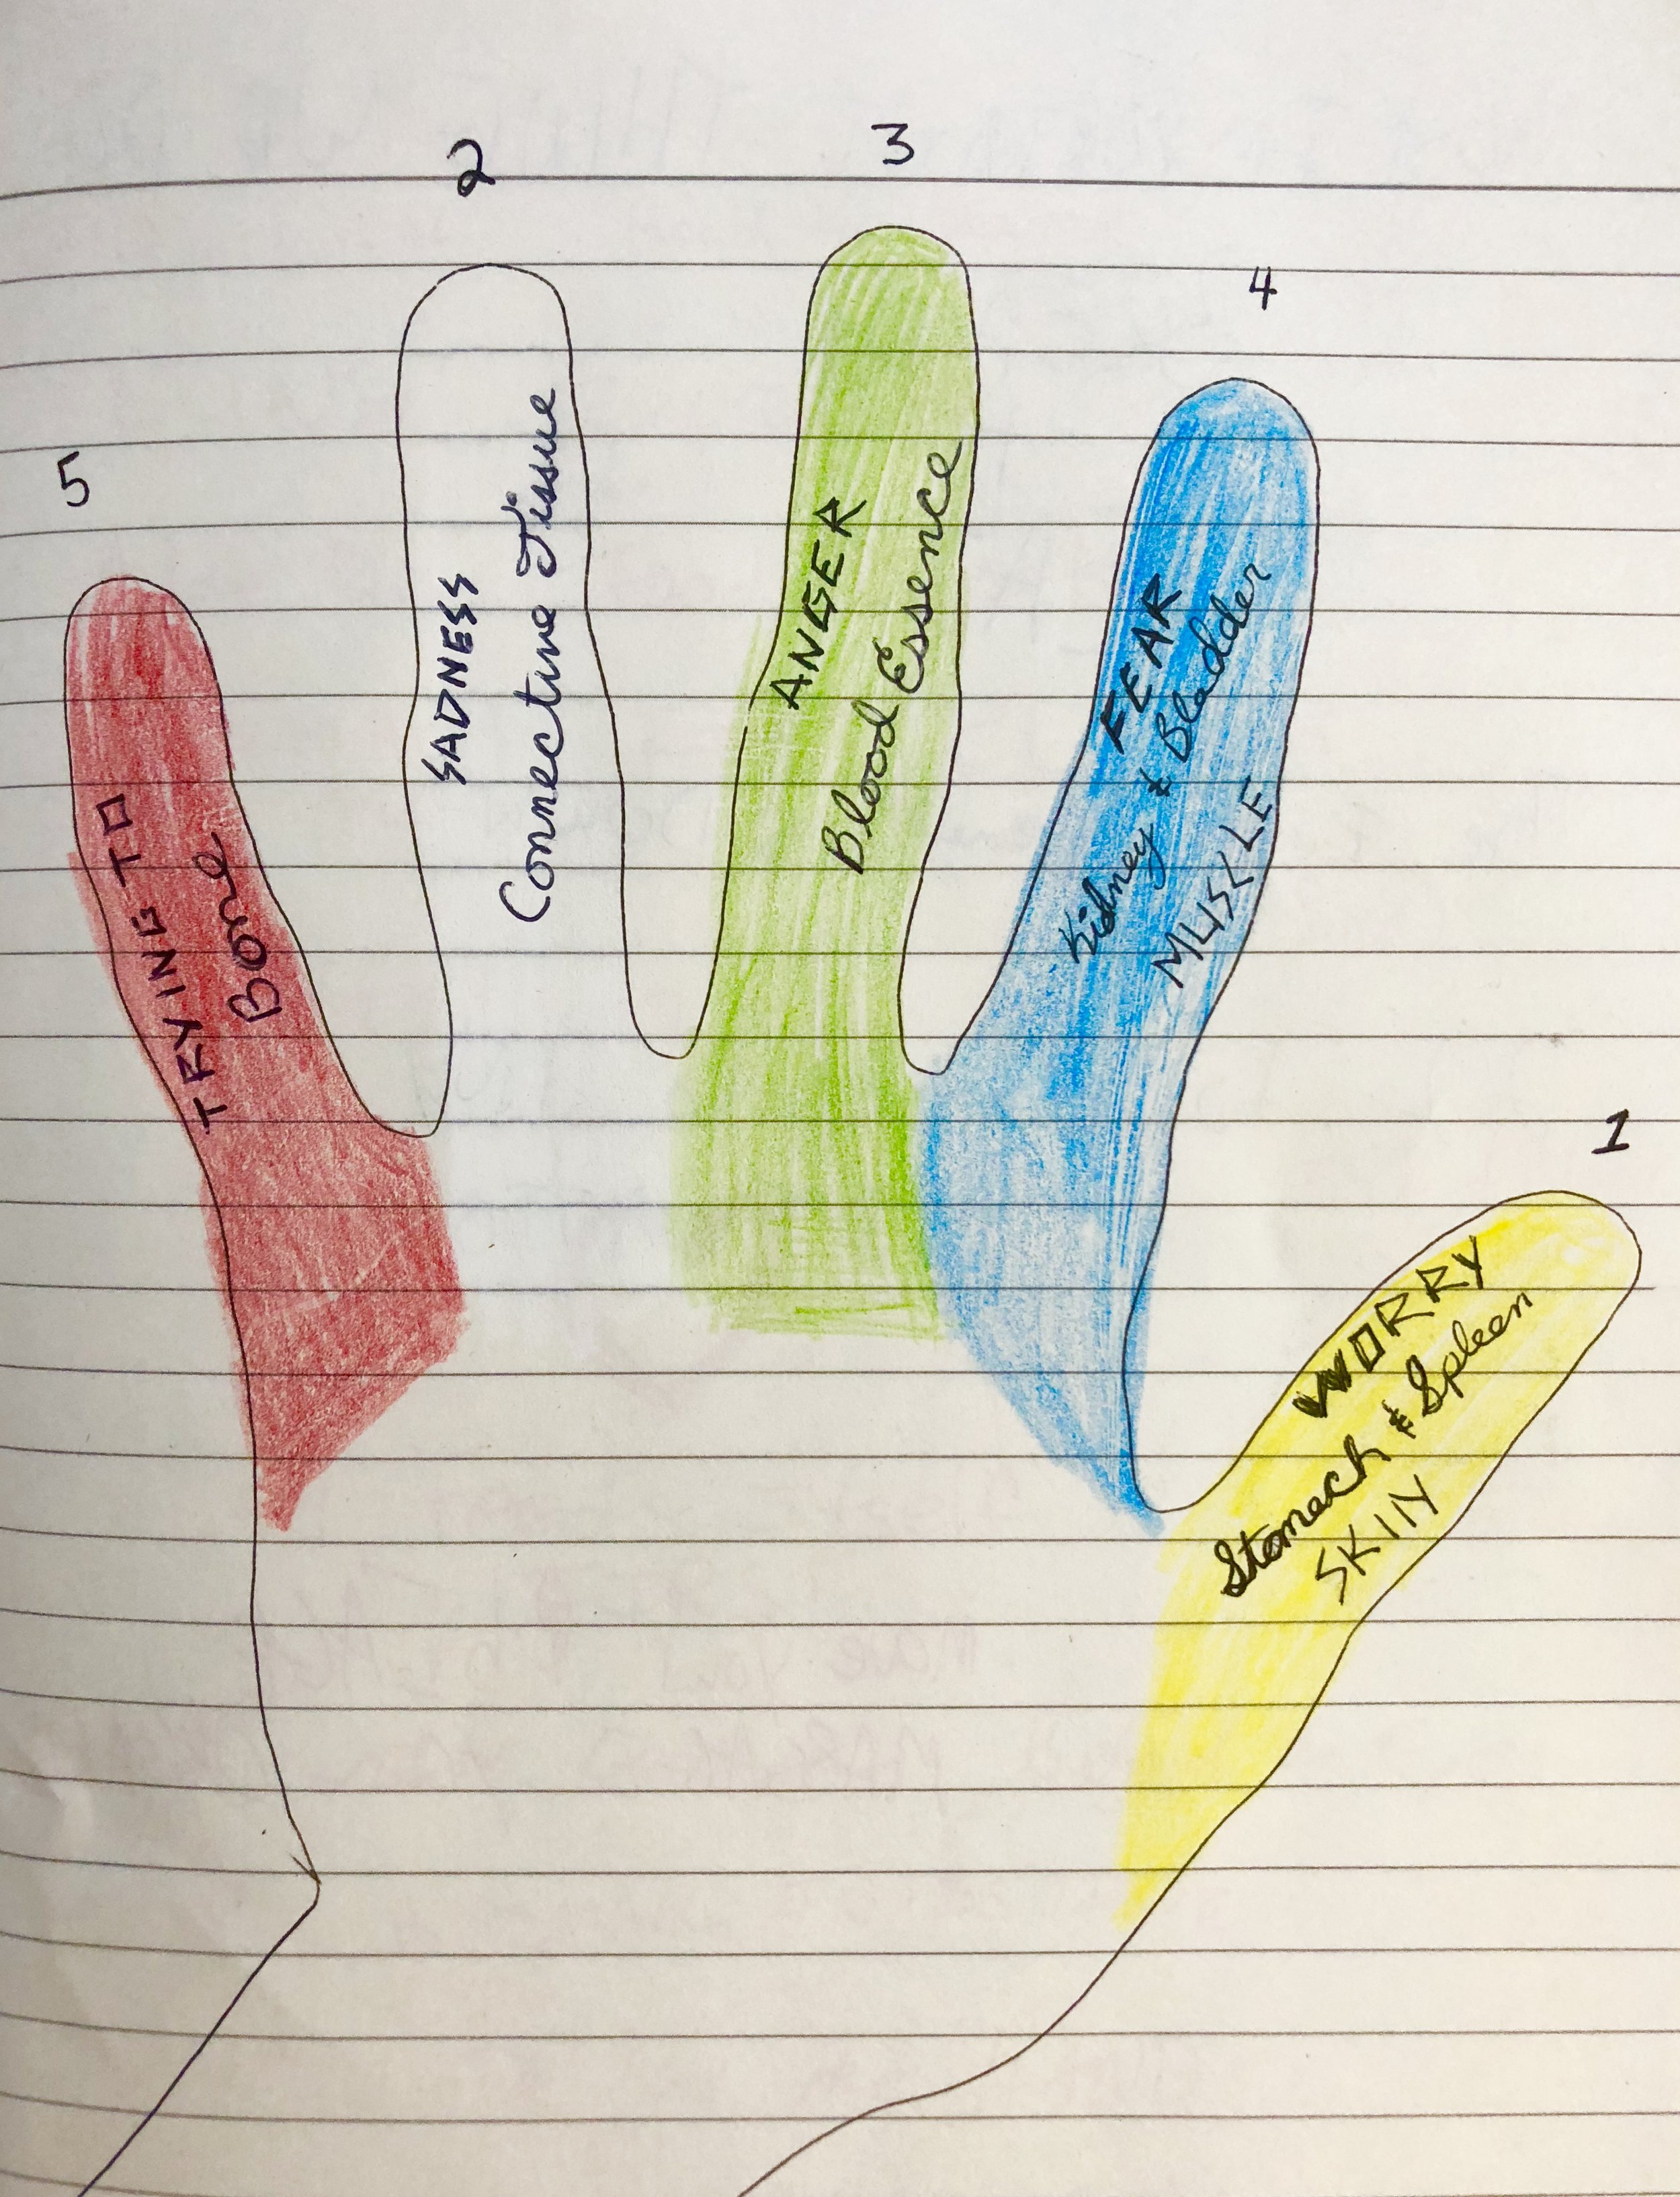 2
3
4
5
1
TRYING TO
Bone
SADNESS
Connective Tissue
ANGER
Blood Essence
FEAR
Kidney & Bladder
MUSCLE
WORRY
Stomach & Spleen
SKIN